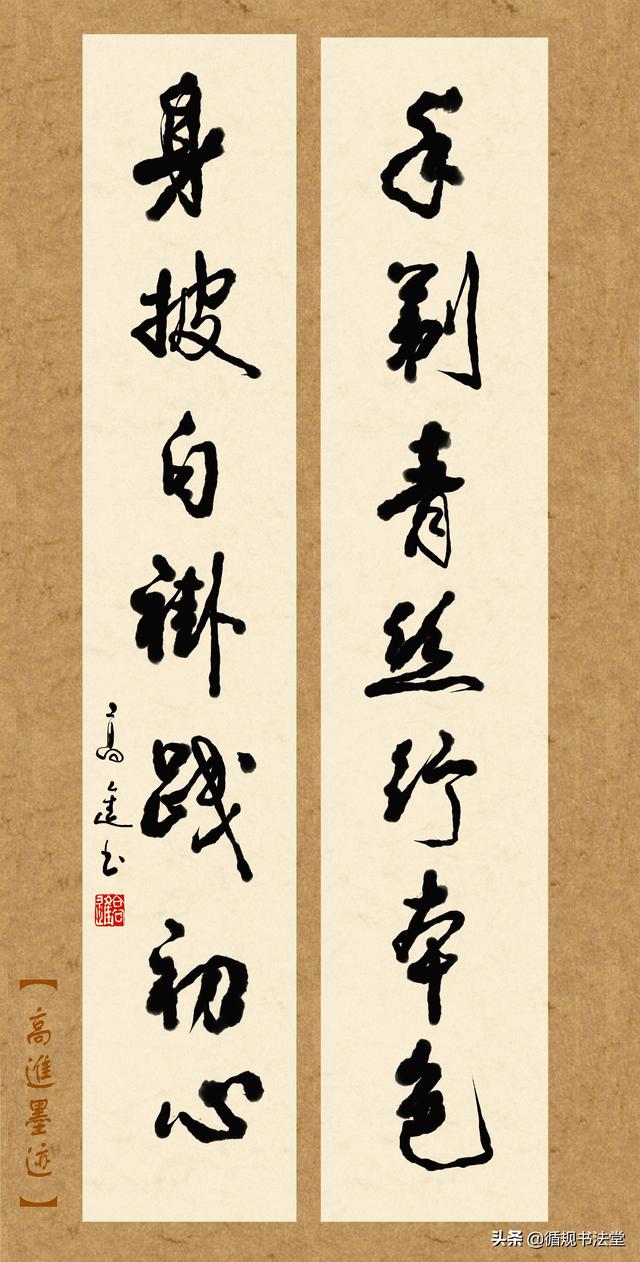 手剃青丝本色
身披白褂践初心
高進书
【高進墨迹】
头条 @循规书法堂